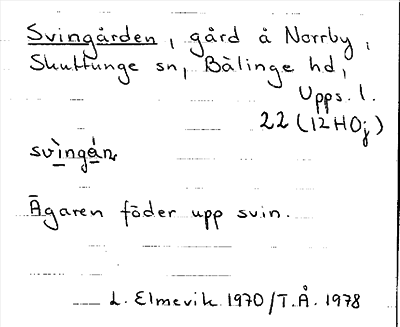 Svingården, gård å Norrby,
Skuttunge sn, Bälinge hd,
Upps. l.
22 (12H0j)
svìngán
Ägaren föder upp svin.
L. Elmevik 1970/T.Å. 1978